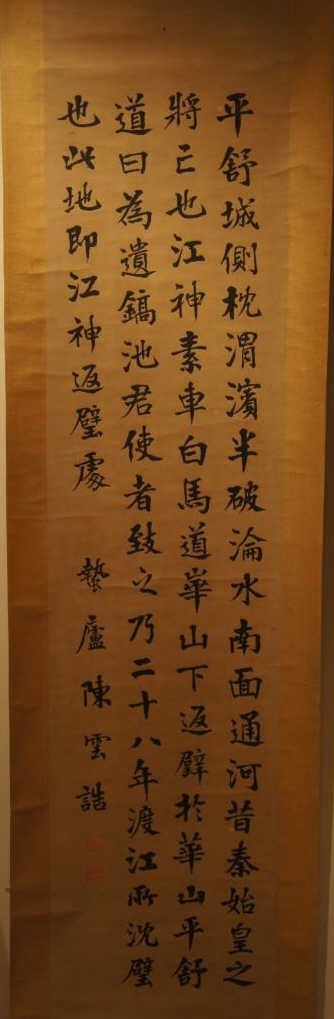 平舒城側枕渭濱半破淪水南面通河昔秦始皇之
將亡也江神素車白馬道華山下返璧於華山平舒
道曰為遺鎬池君使者致之乃二十八年渡江所沈璧
也此地即江神返璧處
蟄廬陳雲誥